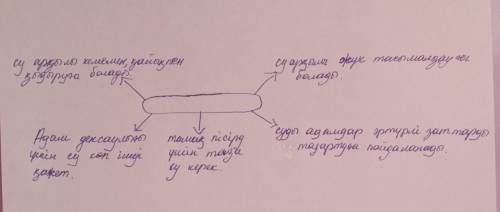 су арқылы кемемен, қайықпен
қыдыруға болады.
су арқылы жүк тасымалдауға
болады.
Адам денсаулығы
үшін су көп ішу
қажет.
тамақ пісіру
үшін таза
су керек.
суды адамдар әртүрлі заттарды
тазартуға пайдаланады.